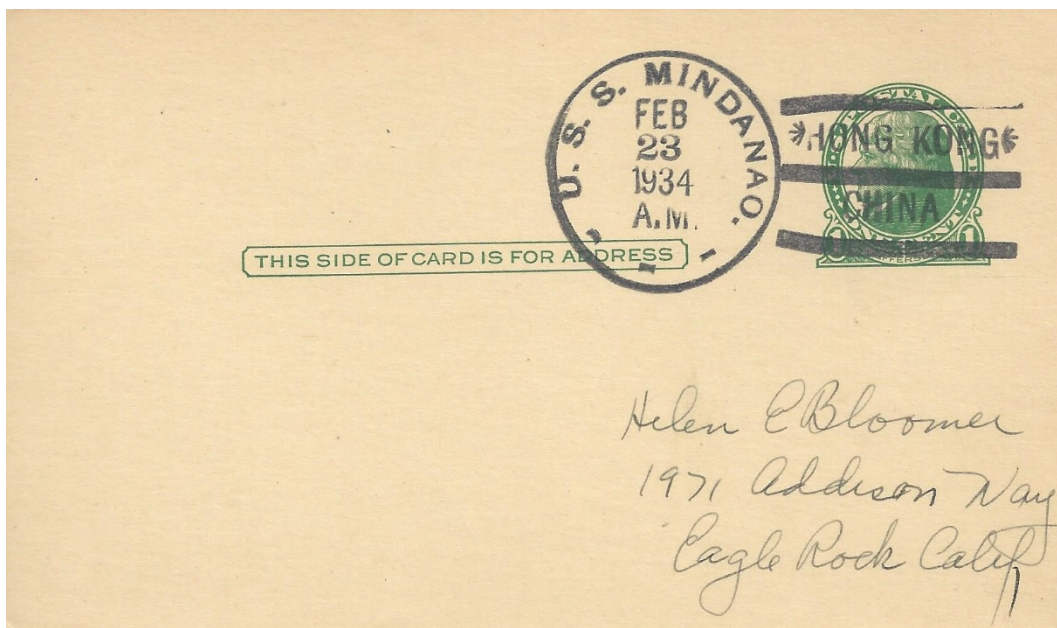 U. S. S. MINDANAO.
FEB
23
1934
A.M.
*HONG KONG*
CHINA
THIS SIDE OF CARD IS FOR ADDRESS
Helen E Bloomer
1971 Addison Way
Eagle Rock Calif